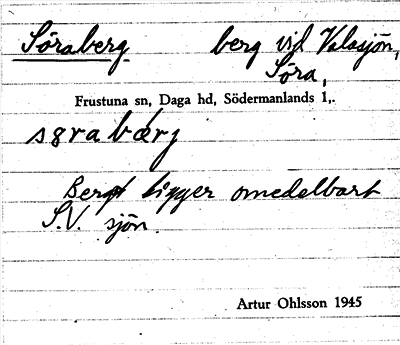 Söraberg berg vid Valasjön,
Söra,
Frustuna sn, Daga hd, Södermanlands l,.
Berget ligger omedelbart
S.V. sjön.
Artur Ohlsson 1945